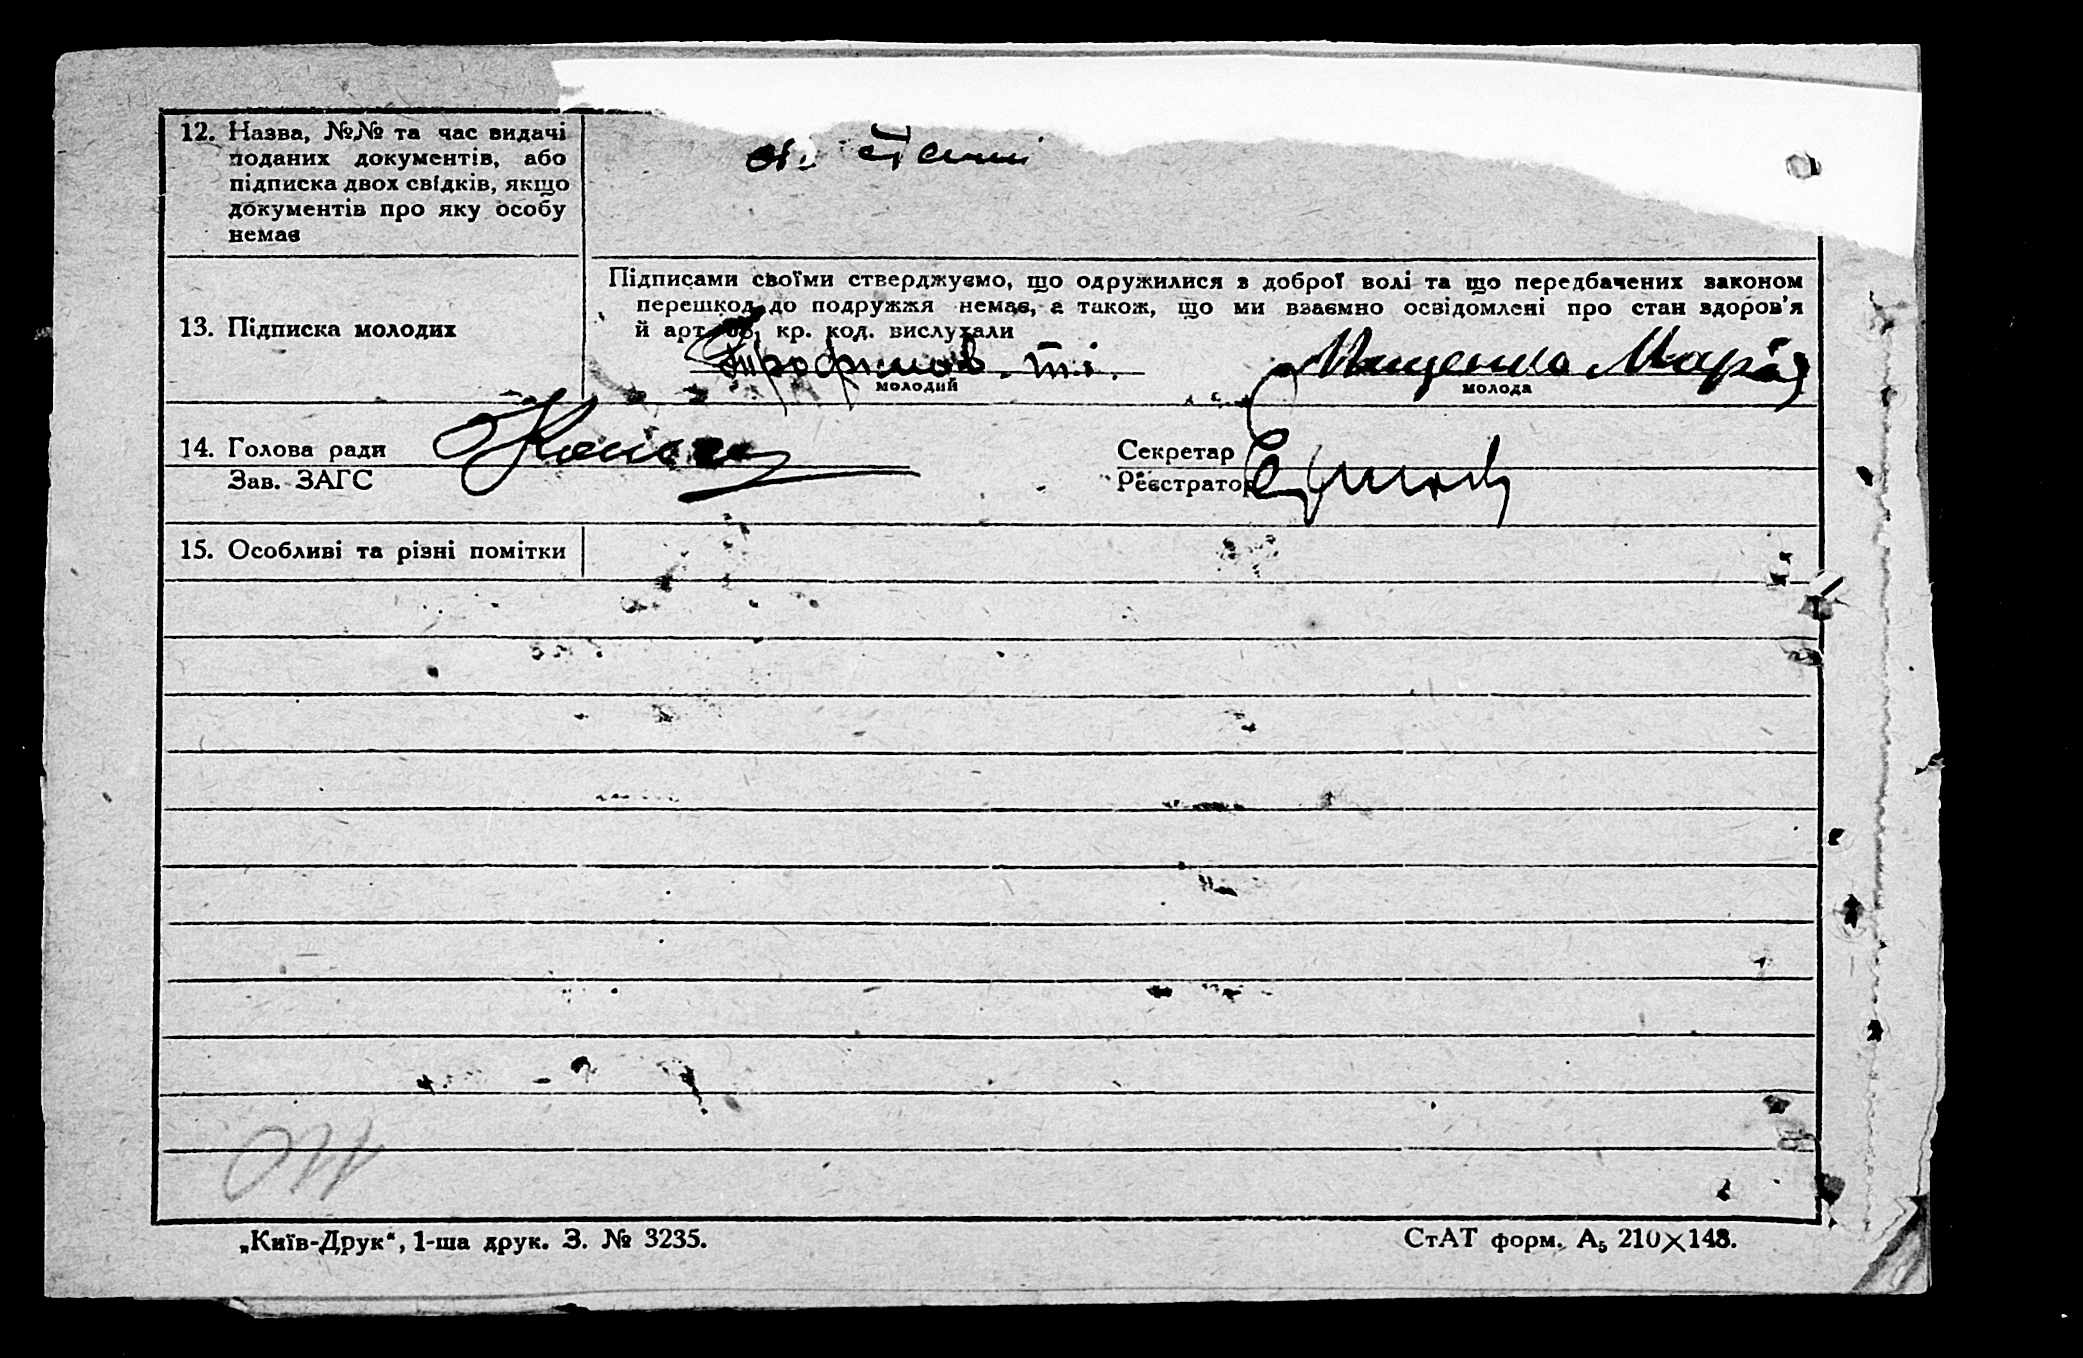 12. Назва, №№ та час видачі
поданих документів, або
підписка двох свідків, якщо
документів про яку особу
немає
Підписами своїми стверджуємо, що одружилися з доброї волі та що передбачених законом
перешкод до подружжя немає, а також, що ми взаємно освідомлені про стан здоров'я
13. Підписка молодих
й арт. кр. код. вислухали
Трофимов. Марія
молодий молода
14. Голова ради Секретар
Зав. ЗАГС Реєстратор
15. Особливі та різні помітки
„Київ-Друк“, 1-ша друк. З. № 3235. СтАТ форм. А₅ 210×148.